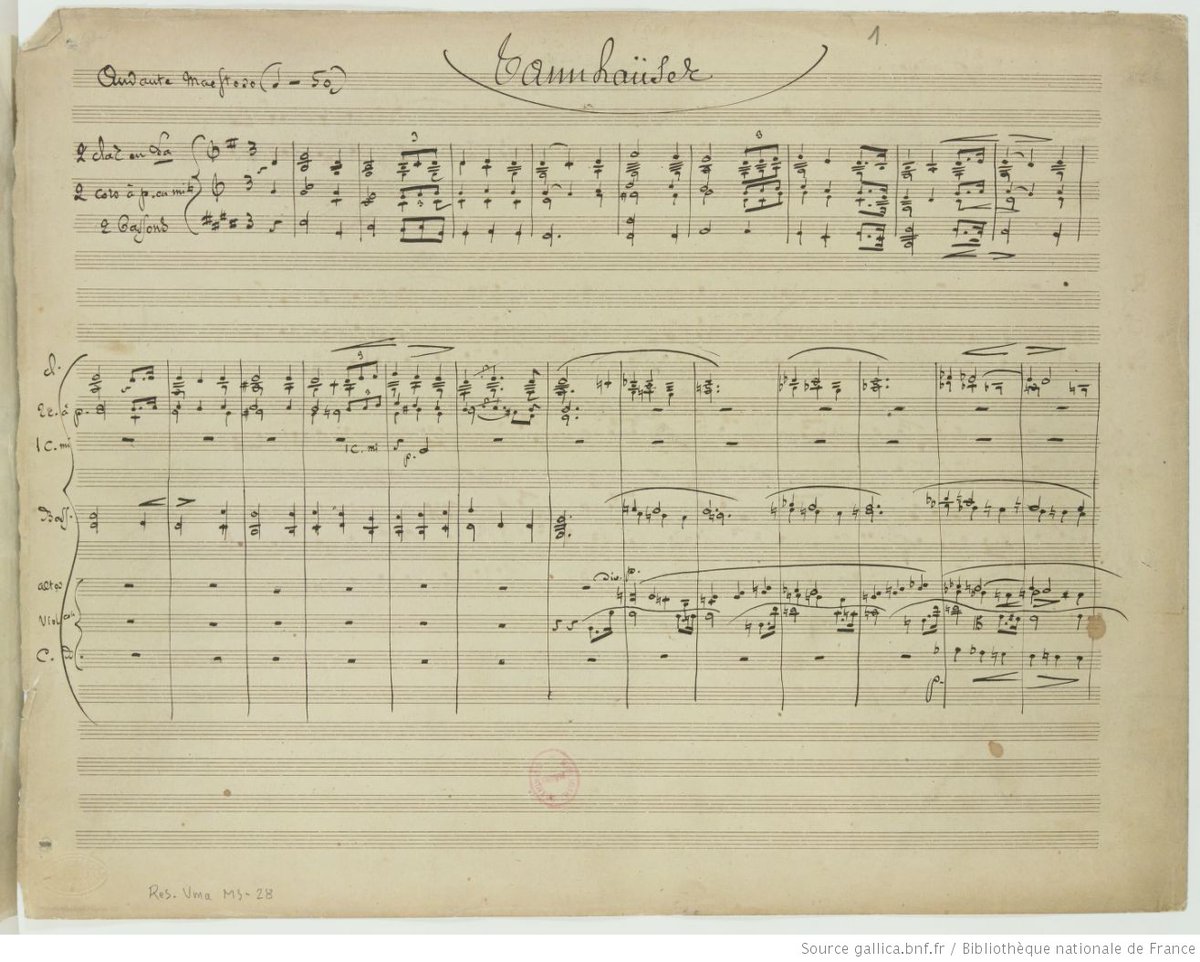 1
Tannhaüser
Andante Maestoso (♩ = 50)
2 clar en la
2 cors à p. en mi
2 Bassons
3
3
3
3
3
3
cl.
2 c. à p.
3
1 C. mi
1 C. mi
p.
Bass.
altos
div.
p.
Violoncelli
C. B.
p.
Res. Vma Ms-28
Source gallica.bnf.fr / Bibliothèque nationale de France